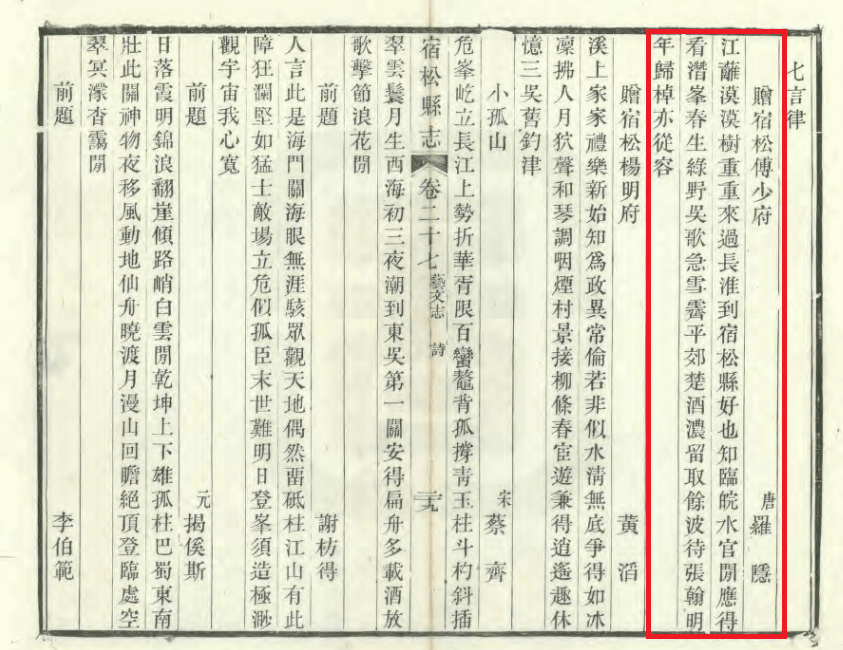 七言律
贈宿松傅少府 唐羅隱
江蘺漠漠樹重重來過長淮到宿松縣好也知臨皖水官閒應得
看潛峯春生綠野吳歌急雪霽平郊楚酒濃留取餘波待張翰明
年歸棹亦從容
贈宿松楊明府 黃滔
溪上家家禮樂新始知爲政異常倫若非似水清無底爭得如冰
凜拂人月狖聲和琴調咽煙村景接柳條春宦遊兼得逍遙趣休
憶三吳舊釣津
小孤山 宋蔡齊
危峯屹立長江上勢折華胥限百蠻鼇背孤撐靑玉柱斗杓斜插
宿松縣志 卷二十七 藝文志 詩 三九
翠雲鬟月生西海初三夜潮到東吳第一關安得扁舟多載酒放
歌擊節浪花閒
前題 謝枋得
人言此是海門關海眼無涯駭眾觀天地偶然畱砥柱江山有此
障狂瀾堅如猛士敵場立危似孤臣末世難明日登峯須造極渺
觀宇宙我心寬
前題 元揭傒斯
日落霞明錦浪翻崖傾路峭白雲閒乾坤上下雄孤柱巴蜀東南
壯此關神物夜移風動地仙舟曉渡月漫山回瞻絕頂登臨處空
翠冥濛杳靄閒
前題 李伯範